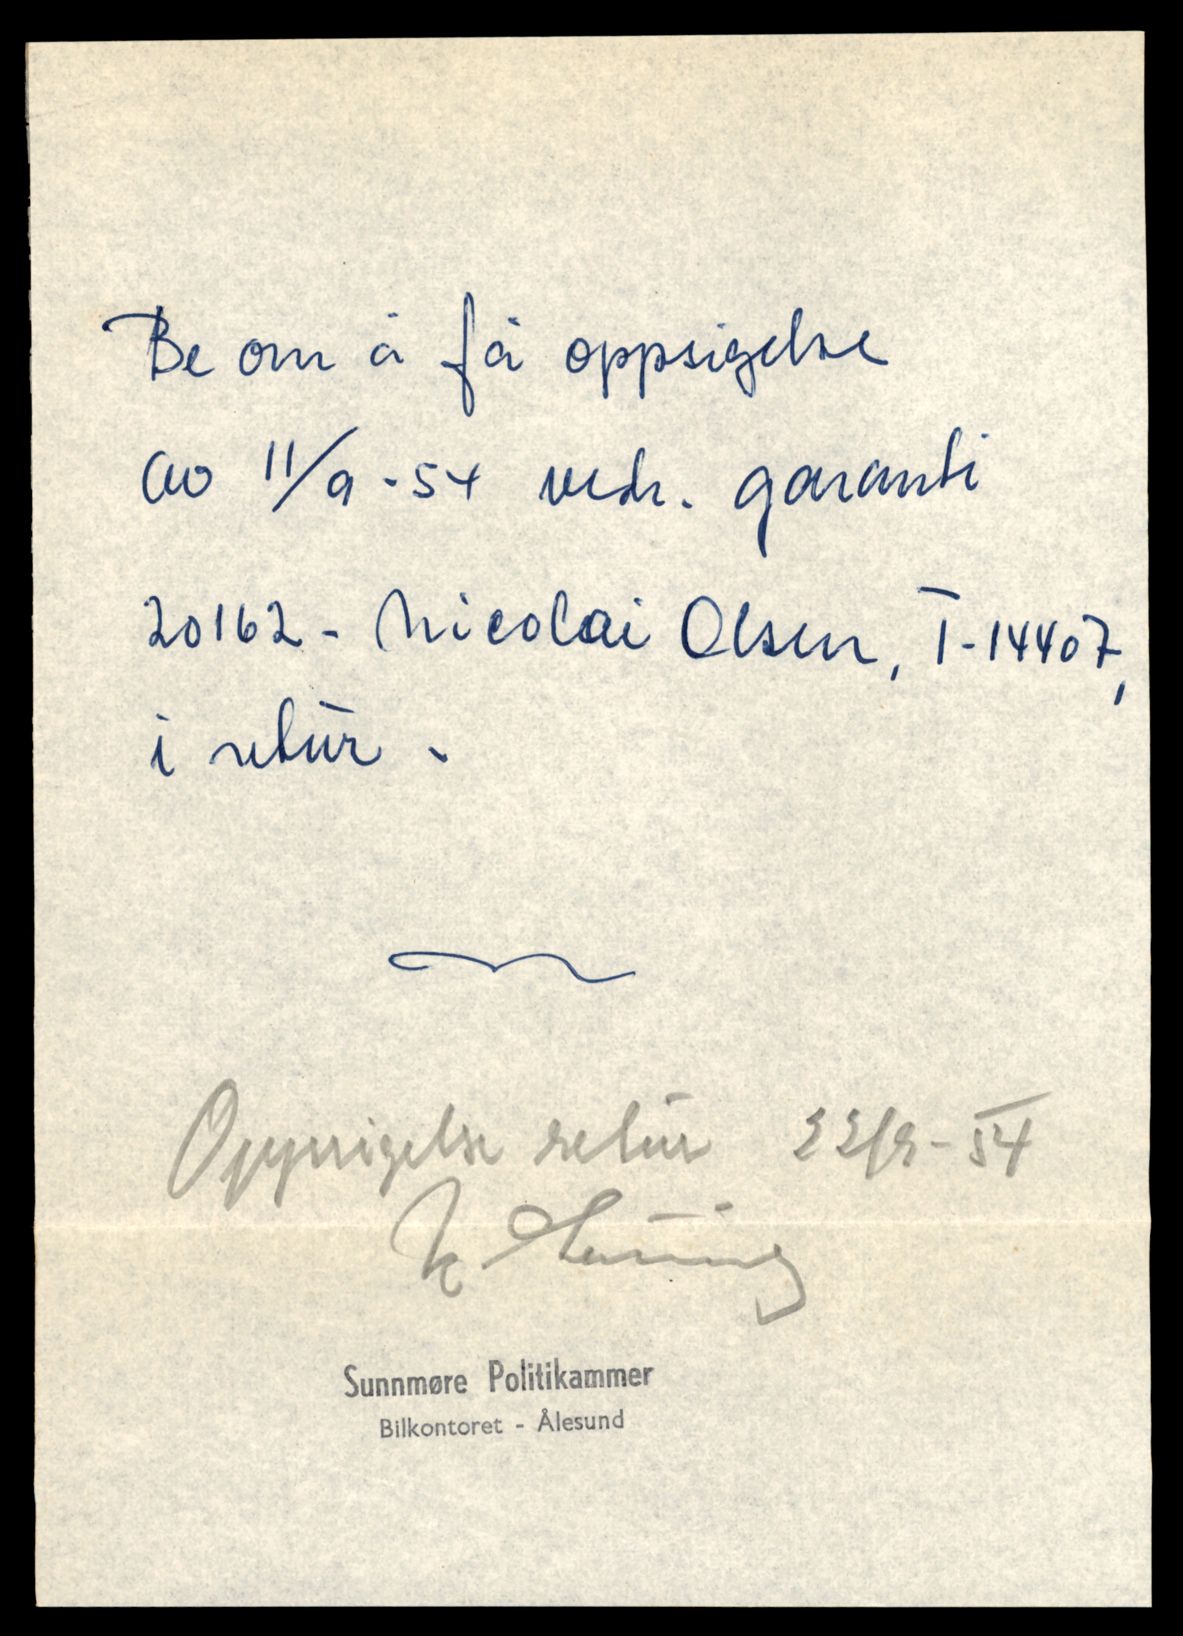 Be om å få oppsigelse
av 11/9-54 vedr. garanti
20162 - Nicolai Olsen, T-14407,
i retur.
Oppsigelse retur 22/9-54
Sunnmøre Politikammer
Bilkontoret - Ålesund